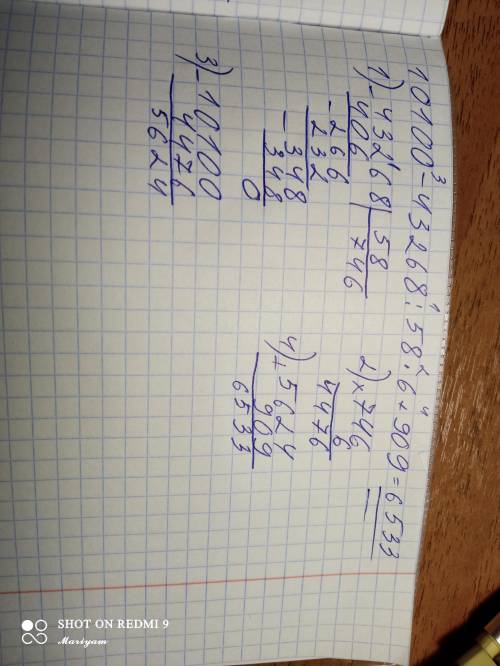 3 1 2 4
10100-43268:58·6+909=6533
1) -43268|58
406 746
-266
232
-348
348
0
2) ×746
6
4476
3) -10100
4476
5624
4) +5624
909
6533
SHOT ON REDMI 9
Mariyam